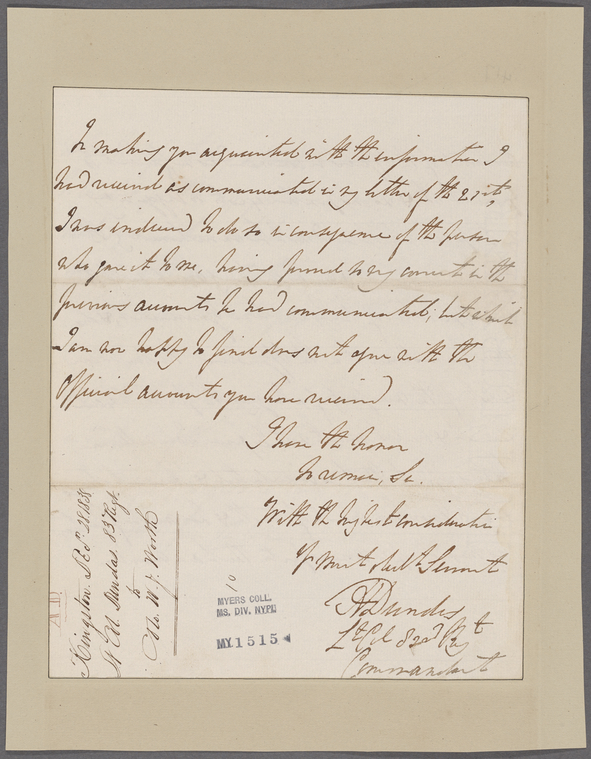 In making you acquainted with the information I
had received as communicated in my letter of the 21st,
I was induced to do so in consequence of the person
who gave it to me, having proved very correct in the
previous accounts he had communicated; but which
I am now happy to find does not agree with the
Official accounts you have received.
I have the honor
to remain, Sir.
With the highest consideration
Yr most obedt Servant
H Dundas
Lt Col 83rd Regt
Commandant
Kingston. 1838
Lt Col. Dundas 83 Regt.
to
Col. W. J. Worth
10
MYERS COLL.
MS. DIV. NYPL
MY. 1515